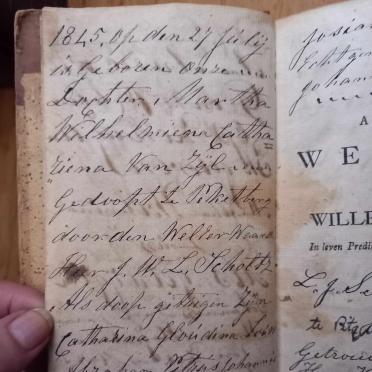 1845, op den 27 Julij
is Geboren onze
Dochter, Martha
Wilhelmiena Catha
"riena Van Zÿl
Gedoopt te Piketberg
door den Wel Eer Waard
Heer J. W. L. Scholtz
Als doop getuigen Zijn
Catharina
Johannes
Josia
Echtgen
Johan
A
W E
WILLE
In leven Predi
L. J. Se
te
Getrouw